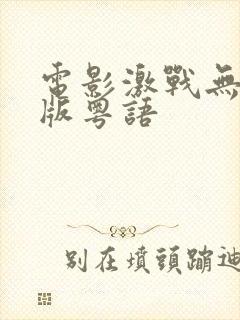 電影激戰無
版粵語
別在墳頭蹦迪